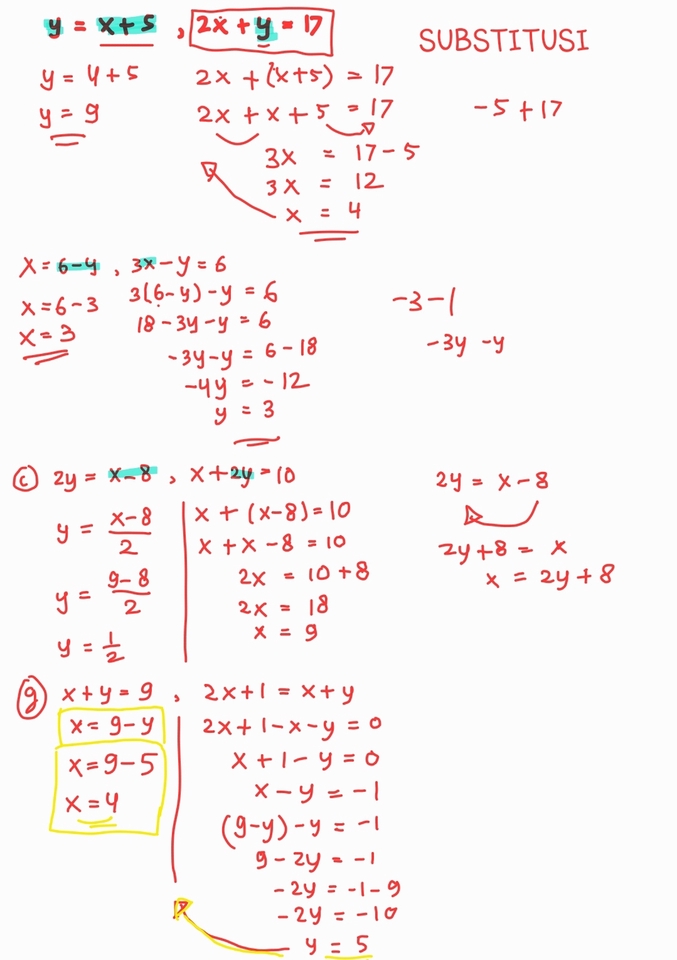 y = x+5 , 2x + y = 17
SUBSTITUSI
y = 4+5
y = 9
2x + (x+5) = 17
2x + x + 5 = 17
3x = 17 - 5
3x = 12
x = 4
-5 + 17
x = 6-y , 3x - y = 6
x = 6-3
x = 3
3(6-y) - y = 6
18 - 3y - y = 6
-3y - y = 6 - 18
-4y = -12
y = 3
-3 - 1
-3y - y
c 2y = x-8 , x + 2y = 10
y = x-8/2
y = 9-8/2
y = 1/2
x + (x-8) = 10
x + x - 8 = 10
2x = 10 + 8
2x = 18
x = 9
2y = x - 8
2y + 8 = x
x = 2y + 8
g x + y = 9 , 2x + 1 = x + y
x = 9 - y
x = 9 - 5
x = 4
2x + 1 - x - y = 0
x + 1 - y = 0
x - y = -1
(9-y) - y = -1
9 - 2y = -1
-2y = -1 - 9
-2y = -10
y = 5